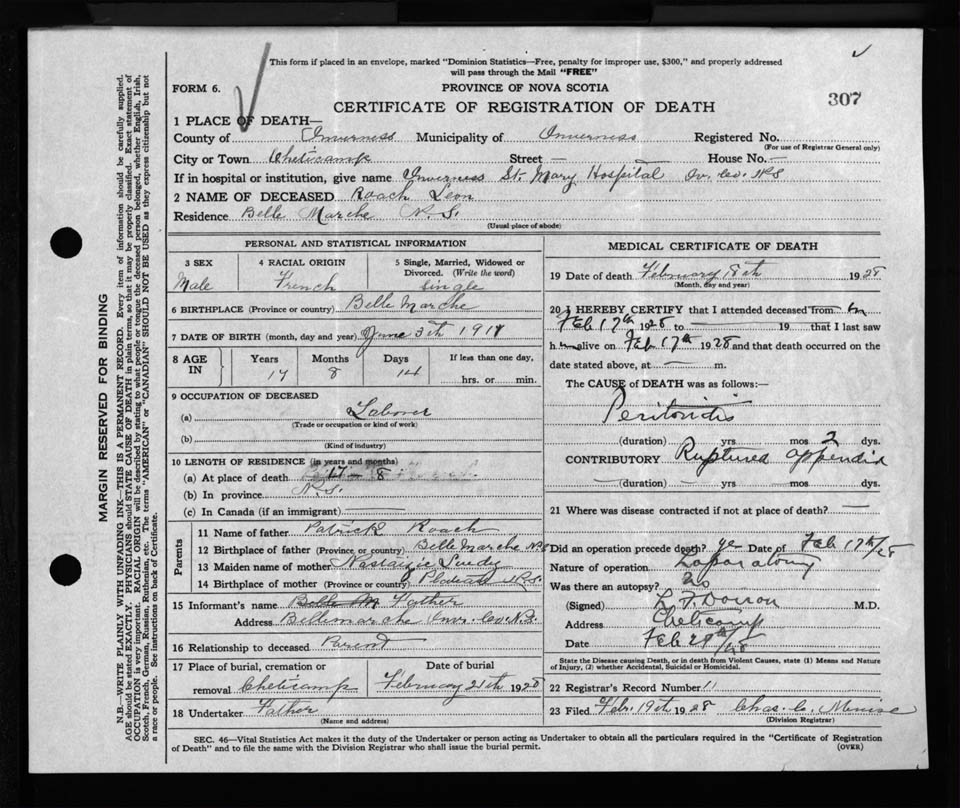 This form if placed in an envelope, marked "Dominion Statistics—Free, penalty for improper use, $300," and properly addressed
will pass through the Mail "FREE"
FORM 6.
PROVINCE OF NOVA SCOTIA
CERTIFICATE OF REGISTRATION OF DEATH
307
1 PLACE OF DEATH—
County of Inverness Municipality of Inverness Registered No.
(For use of Registrar General only)
City or Town Cheticamp Street — House No. —
If in hospital or institution, give name Inverness St. Mary Hospital Inv. Co. N S
2 NAME OF DECEASED Roach Leon
Residence Belle Marche N.S.
(Usual place of abode)
PERSONAL AND STATISTICAL INFORMATION
3 SEX 4 RACIAL ORIGIN 5 Single, Married, Widowed or Divorced. (Write the word)
Male French Single
6 BIRTHPLACE (Province or country) Belle Marche
7 DATE OF BIRTH (month, day and year) June 5th 1911
8 AGE IN Years Months Days If less than one day,
17 8 14 hrs. or min.
9 OCCUPATION OF DECEASED
(a) Laborer
(Trade or occupation or kind of work)
(b)
(Kind of industry)
10 LENGTH OF RESIDENCE (in years and months)
(a) At place of death 17 - 8
(b) In province N.S.
(c) In Canada (if an immigrant)
Parents
11 Name of father Patrick Roach
12 Birthplace of father (Province or country) Belle Marche N S
13 Maiden name of mother
14 Birthplace of mother (Province or country) N.S.
15 Informant's name Father
Address Bellemarche Inv. Co. N.S.
16 Relationship to deceased Parent
17 Place of burial, cremation or removal Cheticamp
Date of burial February 21th 1928
18 Undertaker Father
(Name and address)
MEDICAL CERTIFICATE OF DEATH
19 Date of death February 18th 1928
(Month, day and year)
20 I HEREBY CERTIFY that I attended deceased from on
Feb 17th 1928 to — 19 — that I last saw
h im alive on Feb 17th 1928 and that death occurred on the
date stated above, at — m.
The CAUSE of DEATH was as follows:—
Peritonitis
(duration) yrs mos 2 dys.
CONTRIBUTORY Ruptured appendix
(duration) yrs mos dys.
21 Where was disease contracted if not at place of death? —
Did an operation precede death? yes Date of Feb 17th/28
Nature of operation Laparatomy
Was there an autopsy? No
(Signed) M.D.
Address Cheticamp
Date Feb
State the Disease causing Death, or in death from Violent Causes, state (1) Means and Nature
of Injury, (2) whether Accidental, Suicidal or Homicidal.
22 Registrar's Record Number 11
23 Filed Feb. 19th 1928 Chas. C.
(Division Registrar)
SEC. 46—Vital Statistics Act makes it the duty of the Undertaker or person acting as Undertaker to obtain all the particulars required in the "Certificate of Registration
of Death" and to file the same with the Division Registrar who shall issue the burial permit.
(OVER)
MARGIN RESERVED FOR BINDING
N.B.—WRITE PLAINLY WITH UNFADING INK—THIS IS A PERMANENT RECORD. Every item of information should be carefully supplied.
AGE should be stated EXACTLY. PHYSICIANS should STATE CAUSE OF DEATH in plain terms, so that it may be properly classified. Exact statement of
OCCUPATION is very important. RACIAL ORIGIN will be described by stating to what people or tongue the deceased person belonged, whether English, Irish,
Scotch, French, German, Russian, Ruthenian, etc. The terms "AMERICAN" or "CANADIAN" SHOULD NOT BE USED as they express citizenship but not
a race or people. See instructions on back of Certificate.